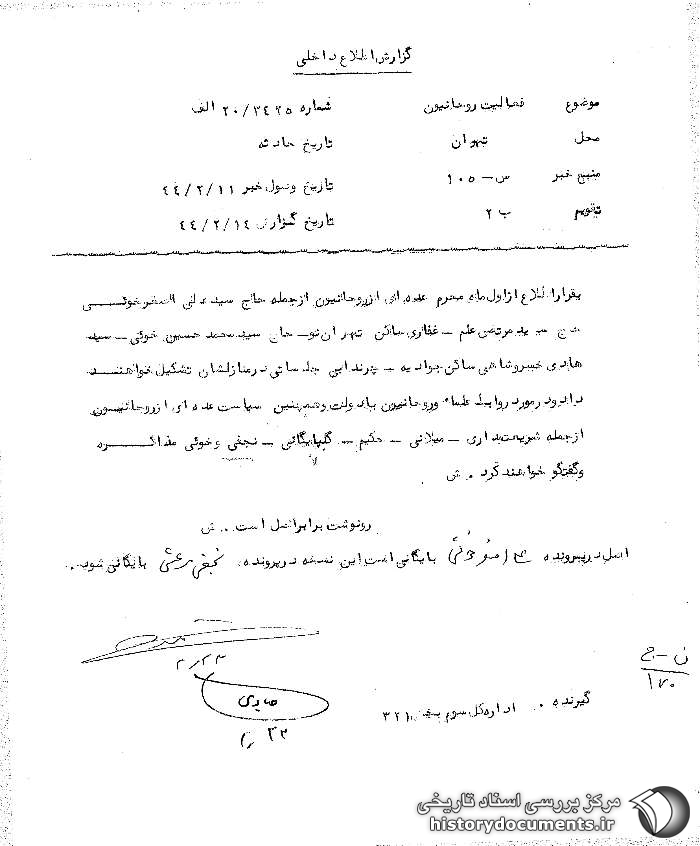 گزارش اطلاع داخلی
موضوع فعالیت روحانیون شماره ۲۰/۳۴۲۵ الف
محل تهران تاریخ حادثه
منبع خبر س – ۱۰۵ تاریخ وصول خبر ۴۴/۲/۱۱
تقویم ب ۲ تاریخ گزارش ۴۴/۲/۱۴
بقرار اطلاع از اول ماه محرم عده ای از روحانیون از جمله حاج سید علی اصغر خوئی
حاج سید مرتضی علم – غفاری ساکن تهران نو – حاج سید محمد حسین خوئی – سید
هادی خسروشاهی ساکن جوادیه – چرندابی جلساتی در منازلشان تشکیل خواهند
داد و در مورد روابط علماء و روحانیون با دولت و همچنین سیاست عده ای از روحانیون
از جمله شریعتمداری – میلانی – حکیم – گلپایگانی – نجفی و خوئی مذاکره
و گفتگو خواهند کرد . ش
رونوشت برابر اصل است . ش
اصل در پرونده خوئی بایگانی است این نسخه در پرونده نجفی مرعشی بایگانی شود .
ن – ج
۱۷۰
۲/۲۳
گیرنده . اداره کل سوم بخش ۳۲۱
مرکز بررسی اسناد تاریخی
historydocuments.ir